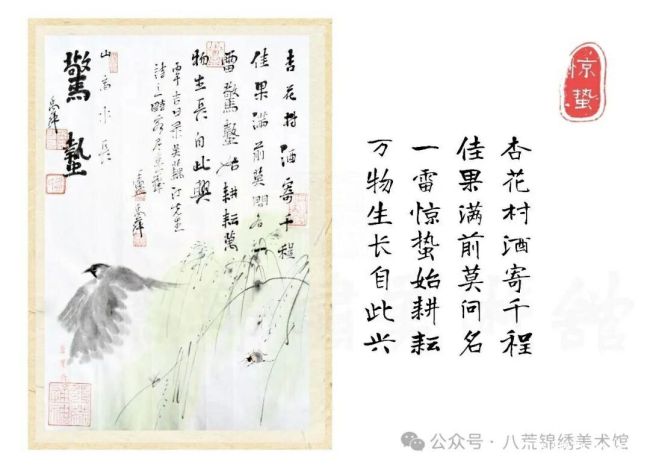 杏花村酒寄千程
佳果满前莫問名一
雷驚蟄始耕耘萬
物生長自此興
丙午吉日录吴藕汀先生
山高水長
驚蟄
惊蛰
杏花村酒寄千程
佳果满前莫问名
一雷惊蛰始耕耘
万物生长自此兴
公众号·八荒锦绣美术馆